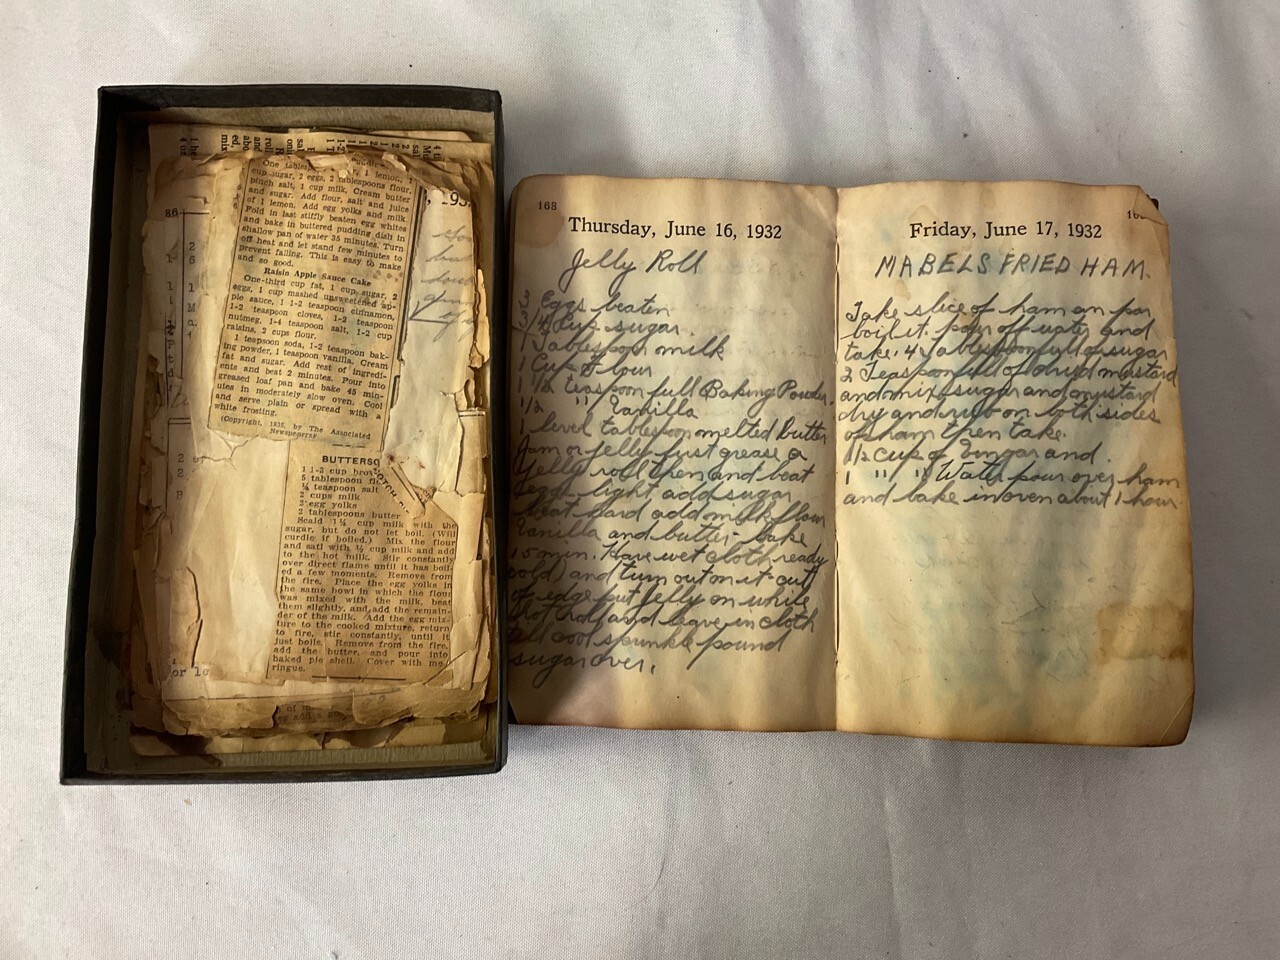 mix
ed.
abo
and
roll
oni
sal
1 T
1-2
1
2
sal
Mu
4 tl
One tables
1 lemon, 1
cup sugar, 2 eggs, 2 tablespoons flour,
pinch salt, 1 cup milk. Cream butter
and sugar. Add flour, salt and juice
of 1 lemon. Add egg yolks and milk.
Fold in last stiffly beaten egg whites
and bake in buttered pudding dish in
shallow pan of water 35 minutes. Turn
off heat and let stand few minutes to
prevent falling. This is easy to make
and so good.
Raisin Apple Sauce Cake
One-third cup fat, 1 cup sugar, 2
eggs, 1 cup mashed unsweetened ap-
ple sauce, 1 1-2 teaspoon cinnamon,
1-2 teaspoon cloves, 1-2 teaspoon
nutmeg, 1-4 teaspoon salt, 1-2 cup
raisins, 2 cups flour.
1 teaspoon soda, 1-2 teaspoon bak-
ing powder, 1 teaspoon vanilla. Cream
fat and sugar. Add rest of ingredi-
ents and beat 2 minutes. Pour into
greased loaf pan and bake 45 min-
utes in moderately slow oven. Cool
and serve plain or spread with a
white frosting.
(Copyright, 1935, by The Associated
Newspapers)
86
or lo
BUTTERSC
OTCH
1 1-3 cup bro
5 tablespoon fl
¼ teaspoon salt
2 cups milk
2 egg yolks
2 tablespoons butter
Scald 1½ cup milk with the
sugar, but do not let boil. (Will
curdle if boiled.) Mix the flour
and salt with ½ cup milk and add
to the hot milk. Stir constantly
over direct flame until it has boil-
ed a few moments. Remove from
the fire. Place the egg yolks in
the same bowl in which the flour
was mixed with the milk, beat
them slightly, and add the remain-
der of the milk. Add the egg mix-
ture to the cooked mixture, return
to fire, stir constantly, until it
just boils. Remove from the fire,
add the butter, and pour into
baked pie shell. Cover with me
ringue.
168
Thursday, June 16, 1932
Jelly Roll
Eggs beaten
3/4 Cup sugar.
1 Tablespoon milk
1 Cup flour
1 1/2 teaspoon full Baking Powder.
1/2 " Vanilla
1 level tablespoon melted butter
Jam or jelly just grease a
Jelly roll then and beat
eggs light add sugar
beat hard add milk flour
Vanilla and butter bake
15 min. Have wet cloth ready
cold) and turn out on it cut
of edge put jelly on while
hot roll and leave in cloth
till cool sprinkle pound
sugar over.
Friday, June 17, 1932
MABELS FRIED HAM.
Take slice of ham an par
boil it. pour off water and
take 4 Tablespoon full of sugar
2 Teaspoon full of dried mustard
and mix sugar and mustard
dry and rub on both sides
of ham then take.
1/2 cup of Vingar and.
1 " " Water pour over ham
and bake in oven about 1 hour.